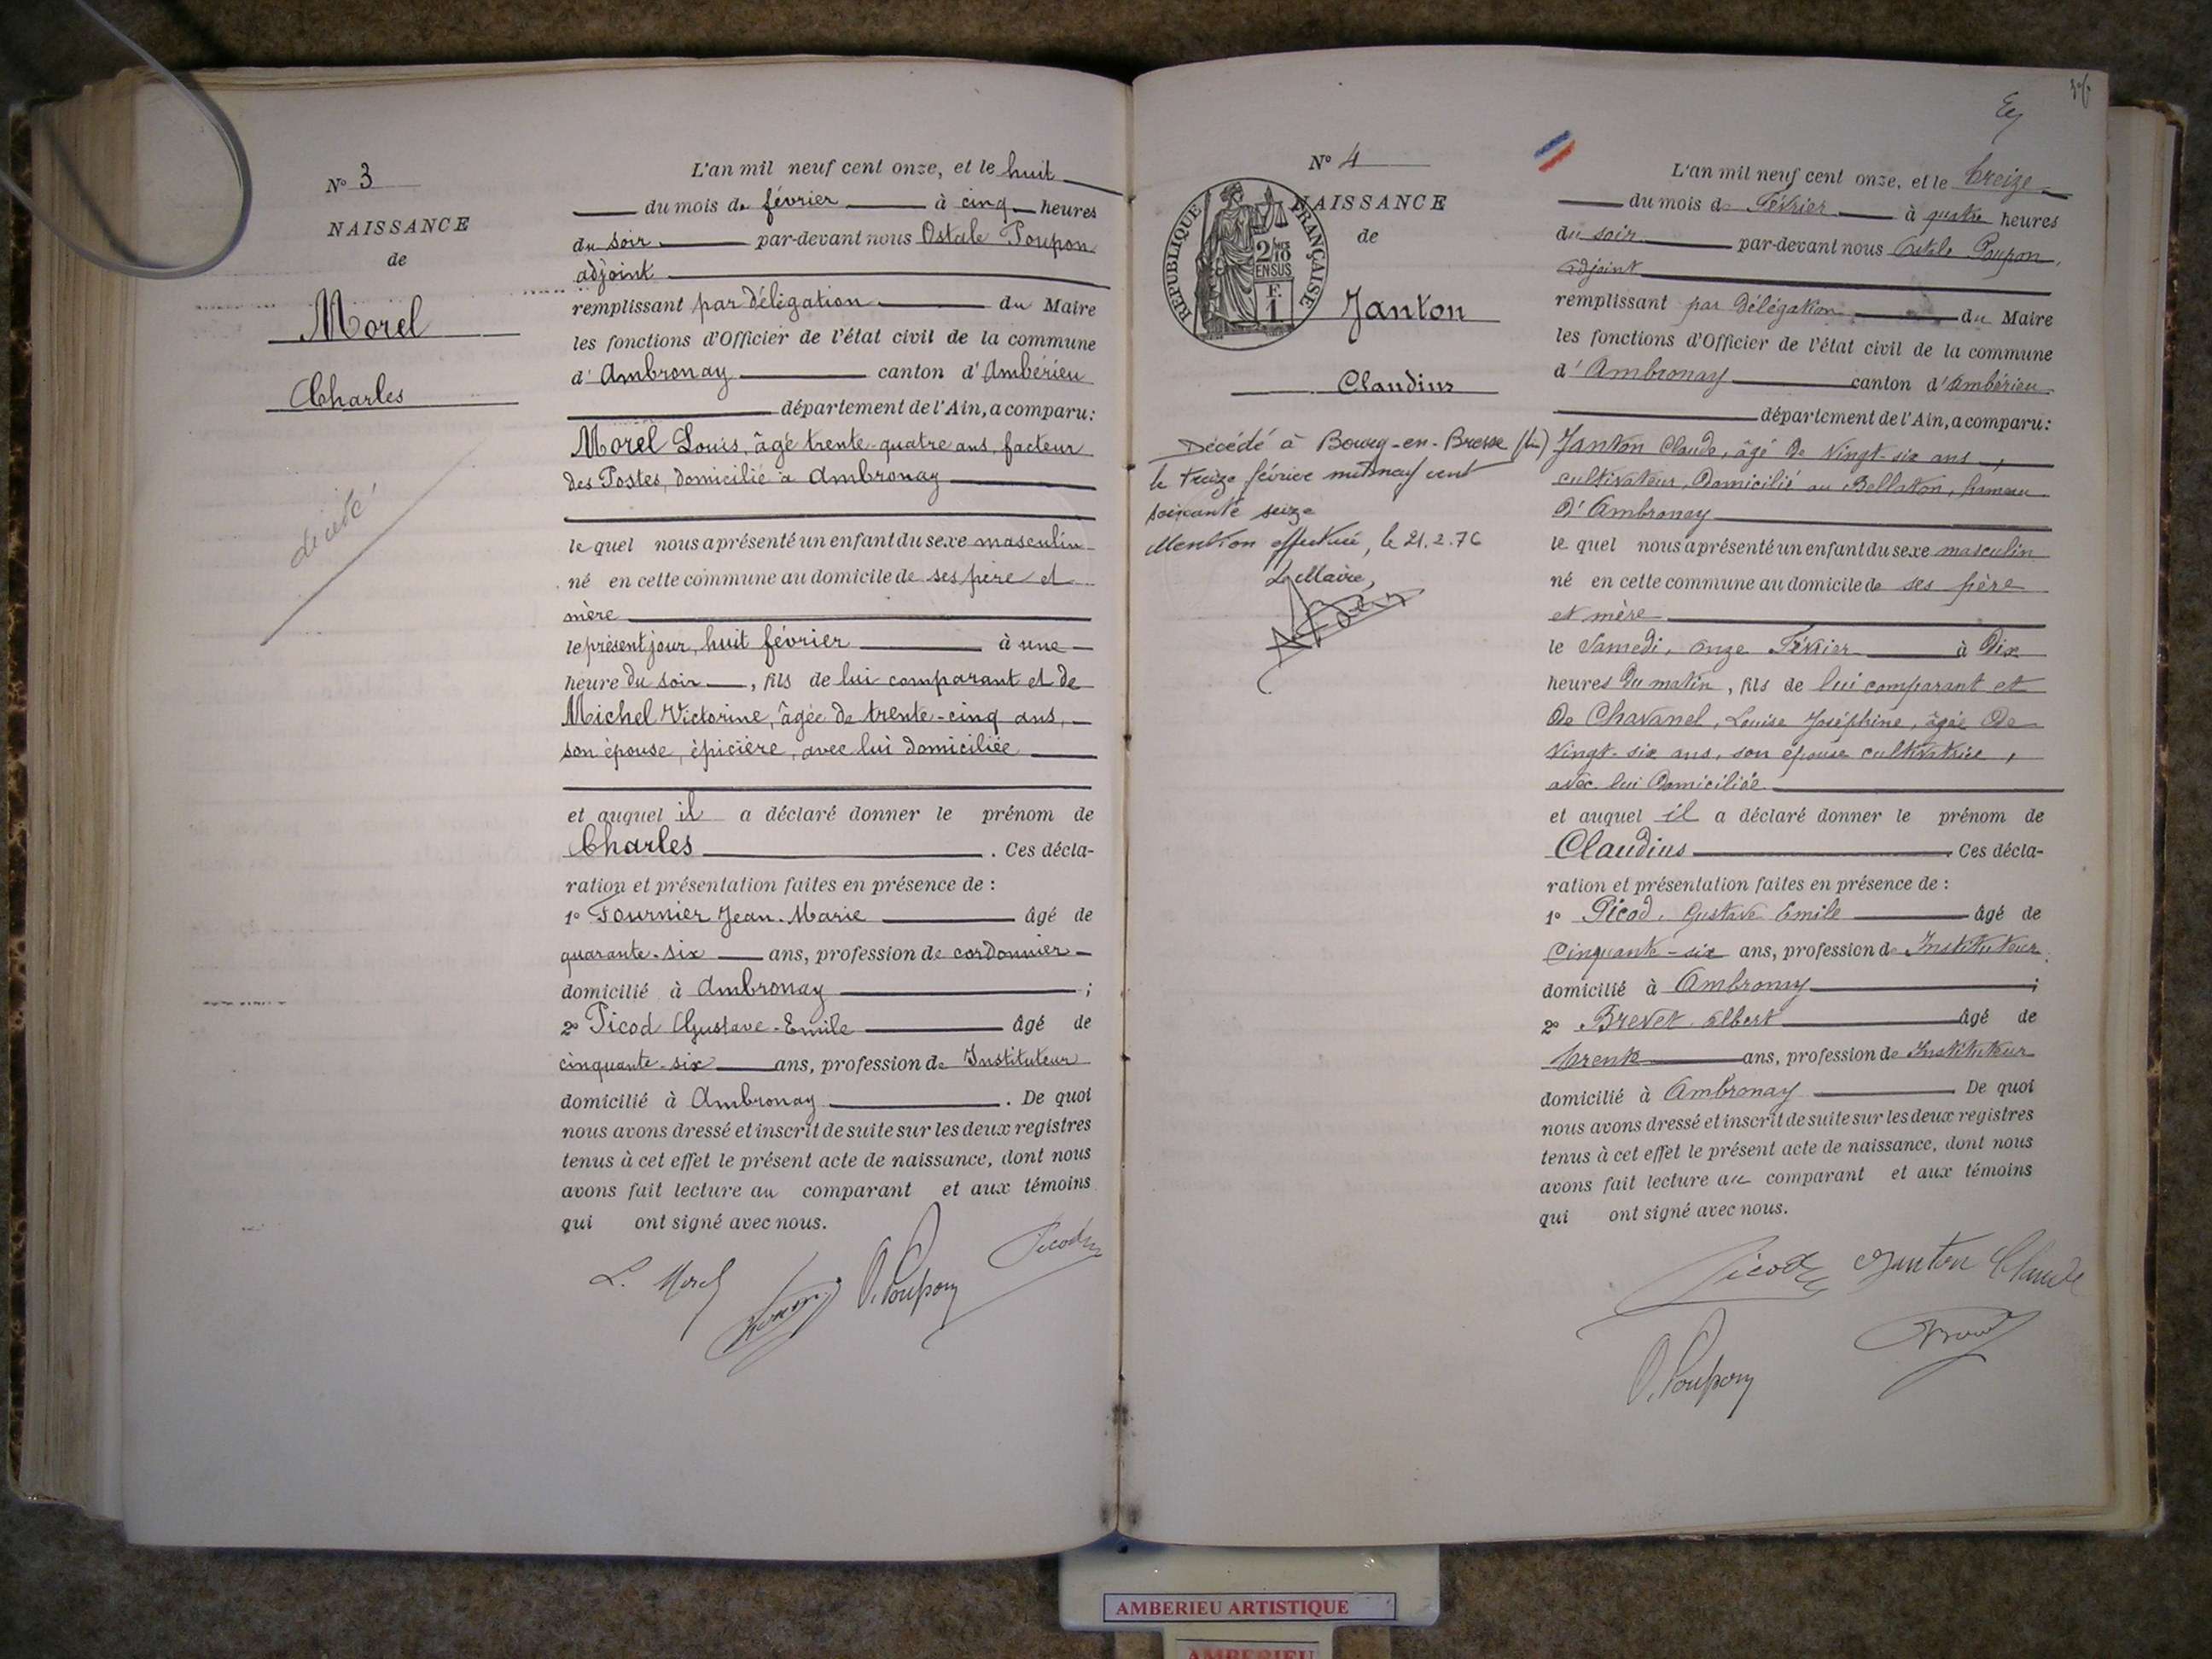 Nº 3
NAISSANCE
de
Morel
Charles
décédé
L'an mil neuf cent onze, et le huit
du mois de février à cinq heures
du soir par-devant nous Ostale Poupon
adjoint
remplissant par délégation du Maire
les fonctions d'Officier de l'état civil de la commune
d'Ambronay canton d'Ambérieu
département de l'Ain, a comparu:
Morel Louis, âgé trente-quatre ans, facteur
des Postes, domicilié à Ambronay
le quel nous a présenté un enfant du sexe masculin
né en cette commune au domicile de ses père et
mère
le présent jour, huit février à une
heure du soir, fils de lui comparant et de
Michel Victorine, âgée de trente-cinq ans,
son épouse, épicière, avec lui domiciliée
et auquel il a déclaré donner le prénom de
Charles. Ces décla-
ration et présentation faites en présence de :
1º Fournier Jean-Marie âgé de
quarante-six ans, profession de cordonnier
domicilié à Ambronay ;
2º Picod Gustave-Emile âgé de
cinquante-six ans, profession de Instituteur
domicilié à Ambronay. De quoi
nous avons dressé et inscrit de suite sur les deux registres
tenus à cet effet le présent acte de naissance, dont nous
avons fait lecture au comparant et aux témoins
qui ont signé avec nous.
L. Morel O. Poupon Picod
Nº 4
NAISSANCE
de
RÉPUBLIQUE FRANÇAISE
2/10
EN SUS
F.
1
Janton
Claudius
Décédé à Bourg-en-Bresse (Ain)
le treize février mil neuf cent
soixante seize
Mention effectuée, le 21.2.76
Le Maire,
L'an mil neuf cent onze, et le treize
du mois de Février à quatre heures
du soir par-devant nous Ostale Poupon,
adjoint
remplissant par délégation du Maire
les fonctions d'Officier de l'état civil de la commune
d'Ambronay canton d'Ambérieu
département de l'Ain, a comparu:
Janton Claude, âgé de vingt-six ans,
cultivateur, domicilié au Bellaton, hameau
d'Ambronay
le quel nous a présenté un enfant du sexe masculin
né en cette commune au domicile de ses père
et mère
le Samedi, onze Février à Dix
heures du matin, fils de lui comparant et
de Chavanel, Louise Joséphine, âgée de
vingt-six ans, son épouse cultivatrice,
avec lui domiciliée
et auquel il a déclaré donner le prénom de
Claudius. Ces décla-
ration et présentation faites en présence de :
1º Picod, Gustave Emile âgé de
Cinquante-six ans, profession de Instituteur
domicilié à Ambronay ;
2º Brevet Albert âgé de
trente ans, profession de Instituteur
domicilié à Ambronay De quoi
nous avons dressé et inscrit de suite sur les deux registres
tenus à cet effet le présent acte de naissance, dont nous
avons fait lecture au comparant et aux témoins
qui ont signé avec nous.
Picod Janton Claude
O. Poupon
AMBERIEU ARTISTIQUE
AMBERIEU